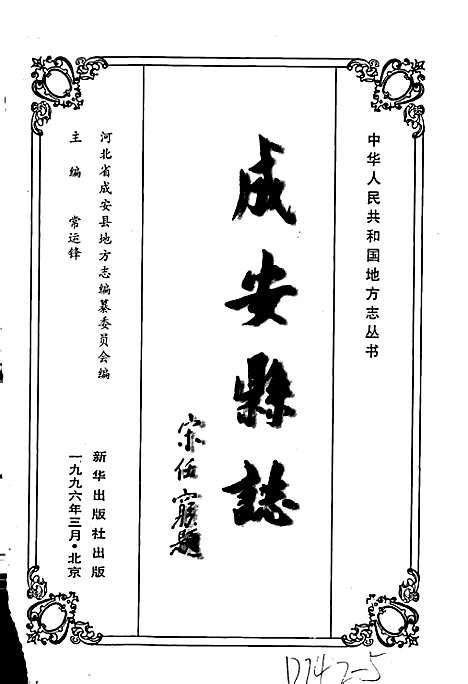 中华人民共和国地方志丛书
成安縣誌
宋任窮題
河北省成安县地方志编纂委员会编
主编 常运锋
新华出版社出版
一九九六年三月·北京
D147-5